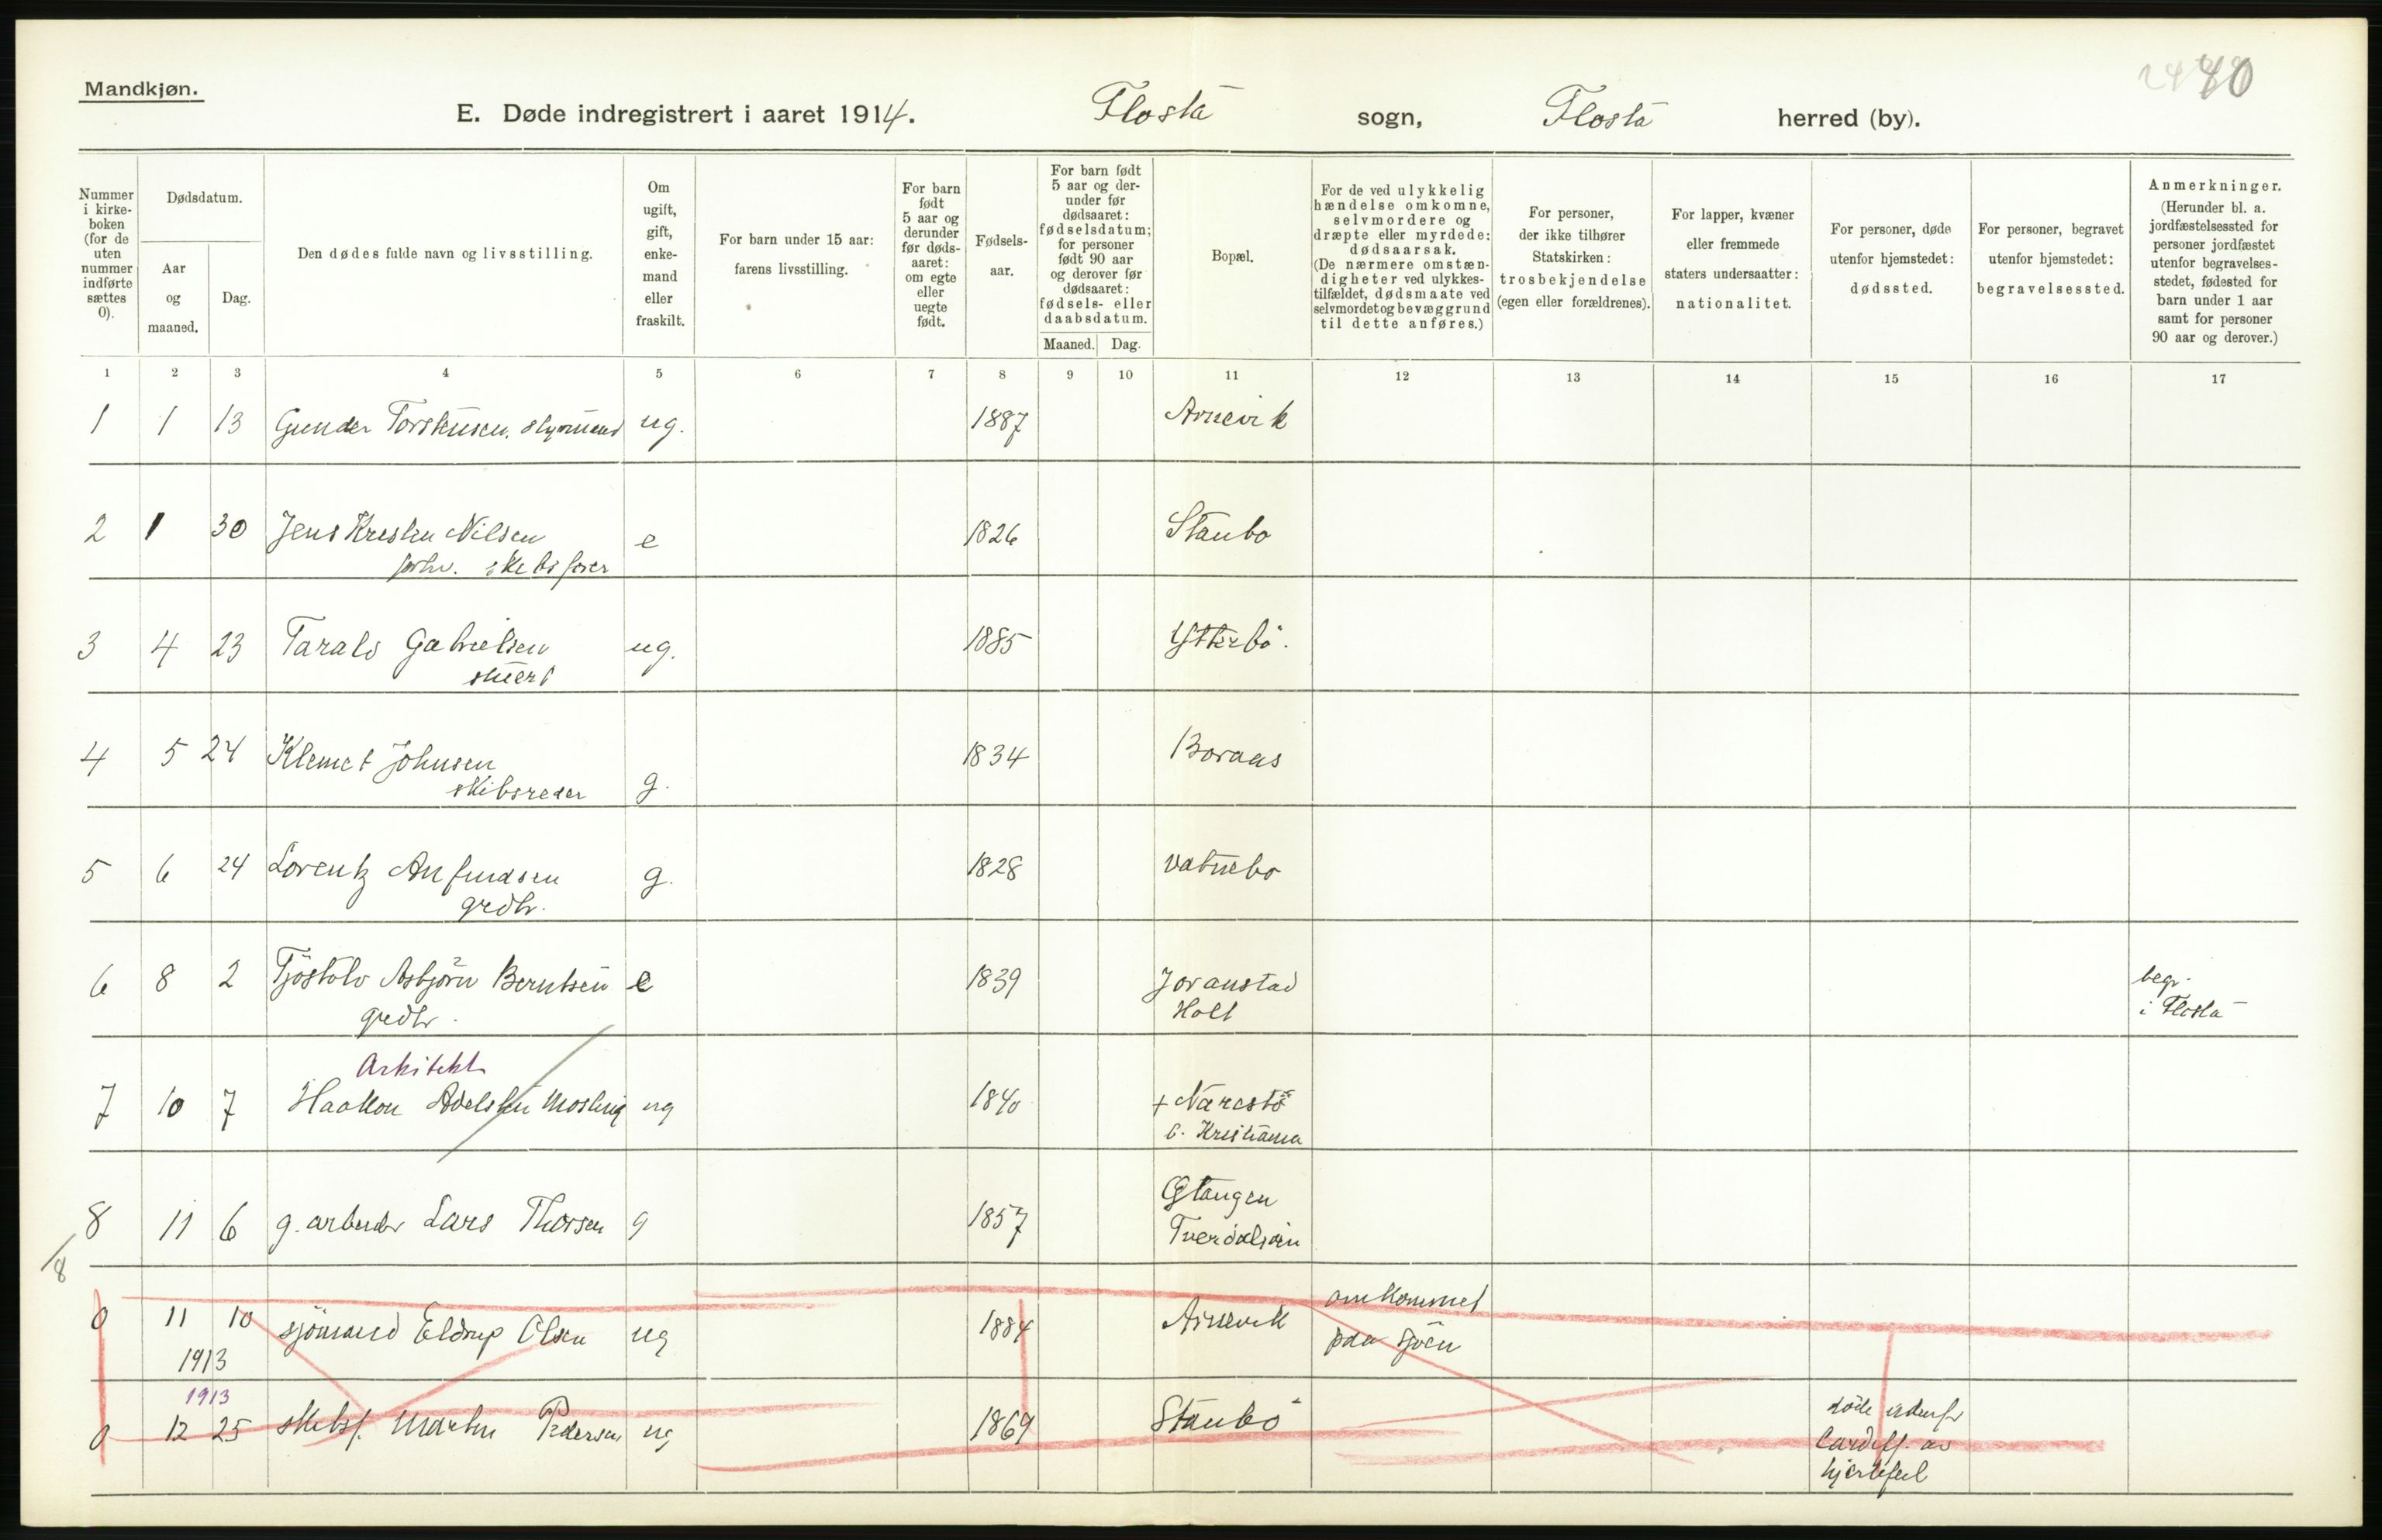 Mandkjøn.
40
E. Døde indregistrert i aaret 1914. Flosta sogn, Flosta herred (by).
Nummer i kirke-boken (for de uten nummer indførte sættes 0).
Dødsdatum.
Aar og maaned.
Dag.
Den dødes fulde navn og livsstilling.
Om ugift, gift, enke-mand eller fraskilt.
For barn under 15 aar: farens livsstilling.
For barn født 5 aar og derunder før døds-aaret: om egte eller uegte født.
Fødsels-aar.
For barn født 5 aar og der-under før dødsaaret: fødselsdatum; for personer født 90 aar og derover før dødsaaret: fødsels- eller daabsdatum.
Maaned. Dag.
Bopæl.
For de ved ulykkelig hændelse omkomne, selvmordere og dræpte eller myrdede: dødsaarsak. (De nærmere omstæn-digheter ved ulykkes-tilfældet, dødsmaate ved selvmordet og bevæggrund til dette anføres.)
For personer, der ikke tilhører Statskirken: trosbekjendelse (egen eller forældrenes).
For lapper, kvæner eller fremmede staters undersaatter: nationalitet.
For personer, døde utenfor hjemstedet: dødssted.
For personer, begravet utenfor hjemstedet: begravelsessted.
Anmerkninger. (Herunder bl. a. jordfæstelsessted for personer jordfæstet utenfor begravelses-stedet, fødested for barn under 1 aar samt for personer 90 aar og derover.)
1 2 3 4 5 6 7 8 9 10 11 12 13 14 15 16 17
1 1 13 Gunder Torstensen, styrmand ug. 1887 Arnevik
2 1 30 Jens Kristen Nilsen e 1826 Staubo
forhv. skibsfører
3 4 23 Tarald Gabrielsen ug. 1885 Ytterbö.
stuert
4 5 24 Klemet Johnsen g. 1834 Boraas
skibsreder
5 6 24 Lorentz Anfindsen g. 1828 Vatnebo
grdbr.
6 8 2 Tjöstolv Asbjörn Berntsen e 1839 Joranstad
grdbr. Holt
begr.
i Flosta
Arkitekt
7 10 7 Haakon Adelsten Mosling ug 1840 + Narestö
b. Kristiania
8 11 6 g. arbeider Lars Thorsen g 1857 Gtangen
Tverdalsöen
/8
0 11 10 sjömand Eldrup Olsen ug 1884 Arnevik omkommet
1913 paa sjöen
1913
0 12 25 skibsf. Martin Pedersen ug 1869 Staubö döde utenfor
Cardiff. av
hjertefeil